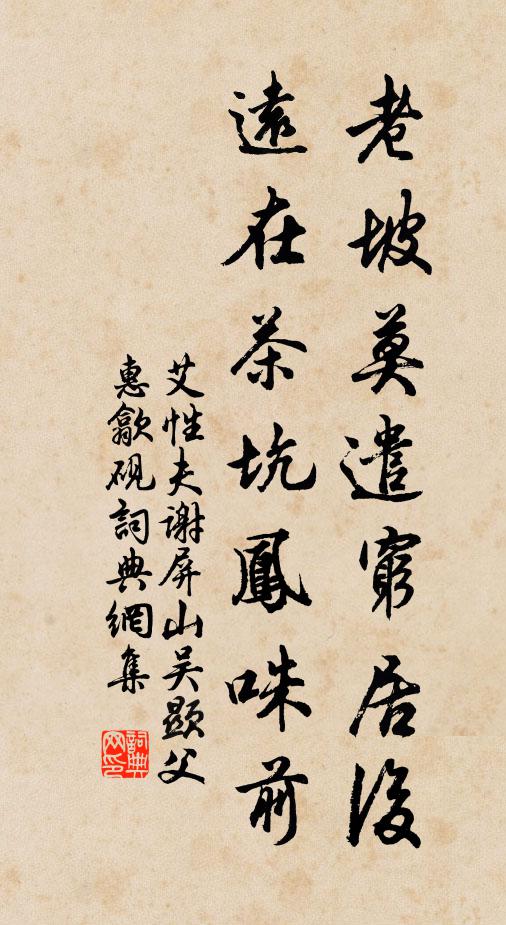 老坡莫遣窮居後
遠在茶坑鳳咮前
艾性夫谢屏山吴顯父
惠歙硯詞典網集
詞典网印